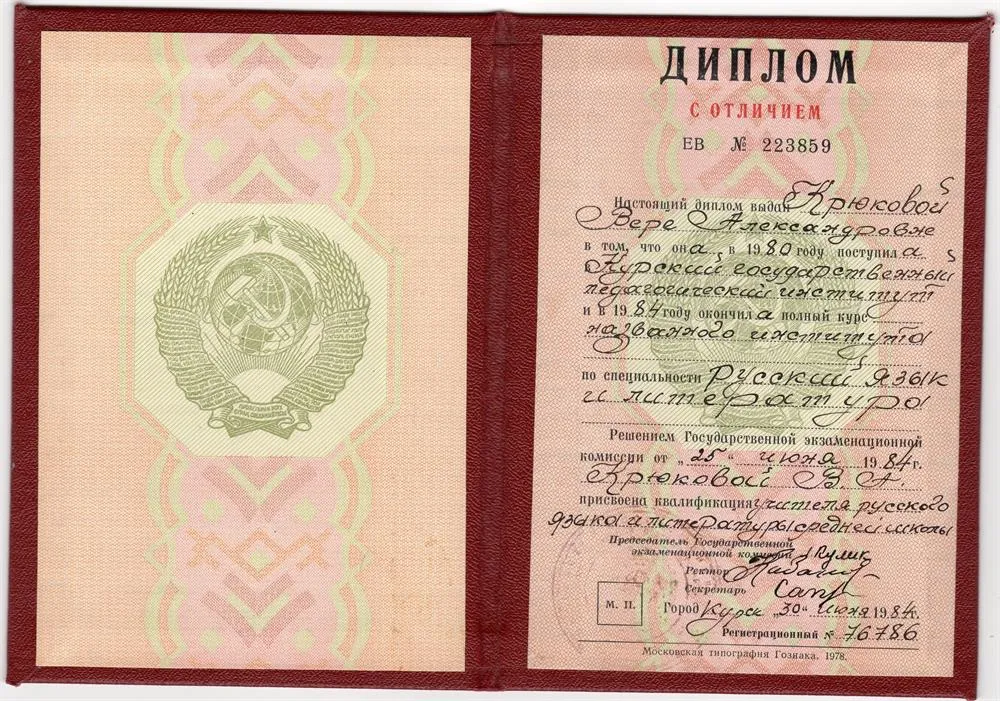 ДИПЛОМ
С ОТЛИЧИЕМ
ЕВ № 223859
Настоящий диплом выдан Крюковой
Вере Александровне
в том, что она в 1980 году поступила
в Курский государственный
педагогический институт
и в 1984 году окончила полный курс
названного института
по специальности русский язык
и литература
Решением Государственной экзаменационной
комиссии от „25“ июня 1984 г.
Крюковой В. А.
присвоена квалификация учителя русского
языка и литературы средней школы
Председатель Государственной
экзаменационной комиссии Кулик
Ректор
Секретарь
М. П.
Город Курск „30“ июня 1984 г.
Регистрационный № 76786
Московская типография Гознака. 1978.